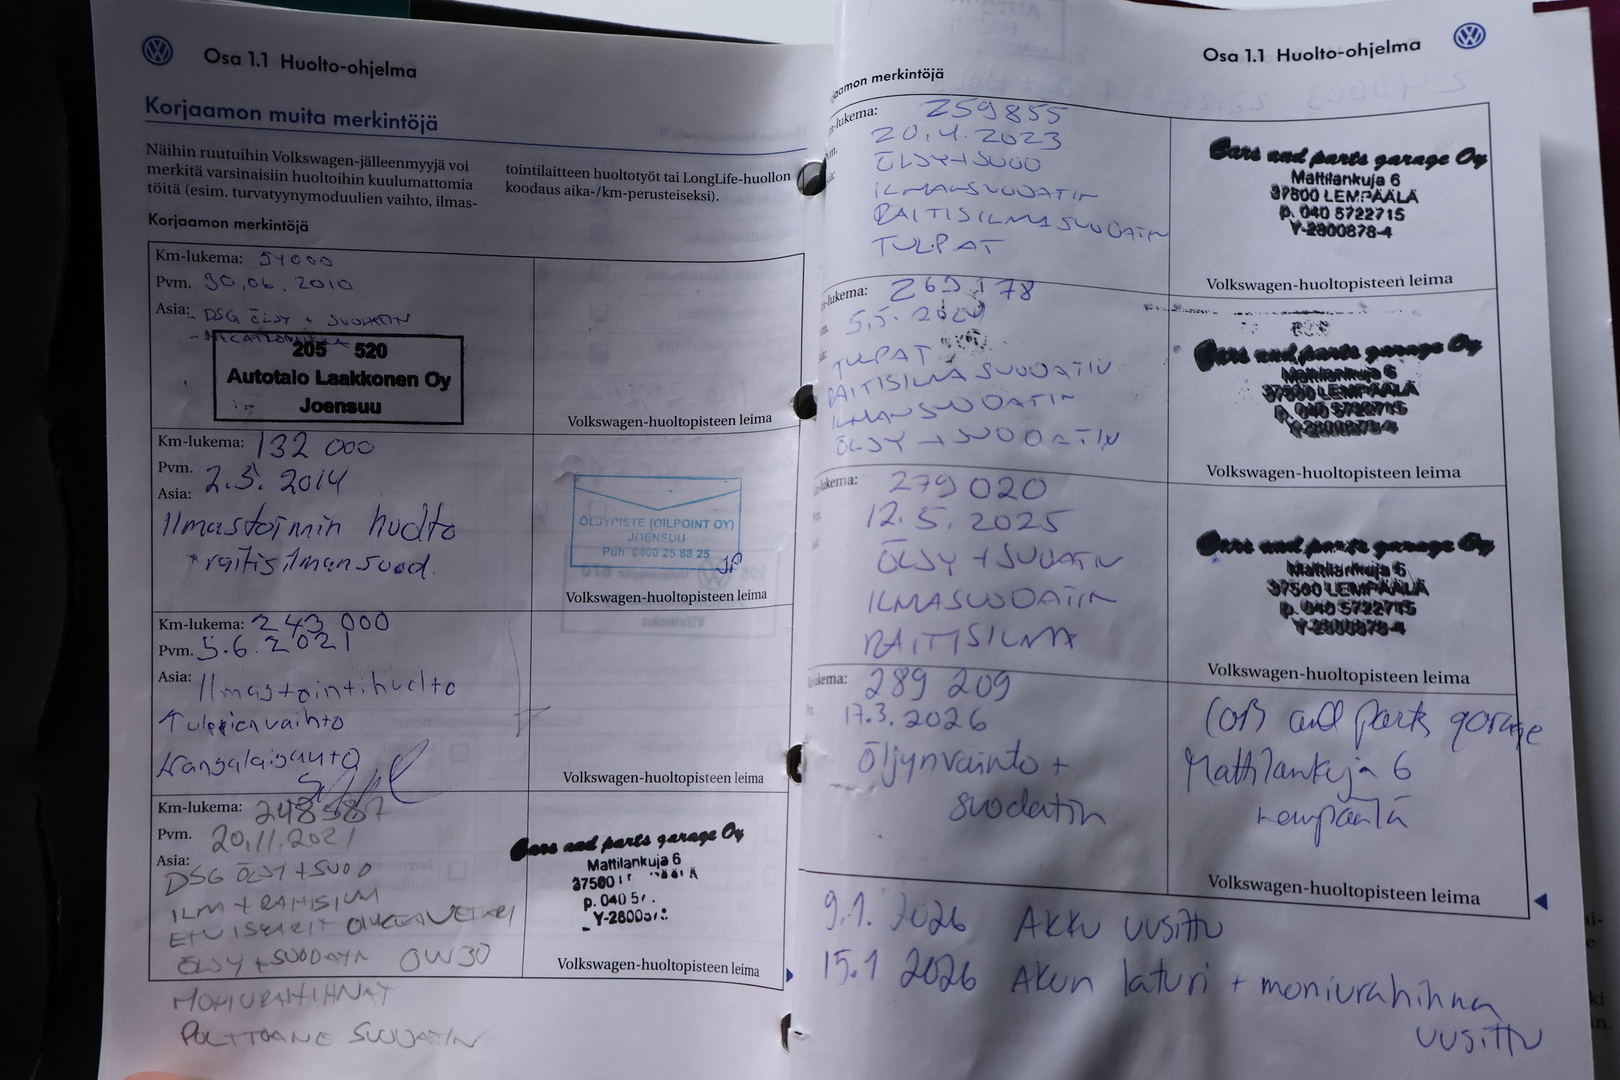 Osa 1.1 Huolto-ohjelma
Korjaamon muita merkintöjä
Näihin ruutuihin Volkswagen-jälleenmyyjä voi
merkitä varsinaisiin huoltoihin kuulumattomia
töitä (esim. turvatyynymoduulien vaihto, ilmas-
tointilaitteen huoltotyöt tai LongLife-huollon
koodaus aika-/km-perusteiseksi).
Korjaamon merkintöjä
Km-lukema: 54000
Pvm. 30.06.2010
Asia: - DSG ÖLJY + SUODATIN
205 520
Autotalo Laakkonen Oy
Joensuu
Volkswagen-huoltopisteen leima
Km-lukema: 132 000
Pvm. 2.5. 2014
Asia:
Ilmastoinnin huolto
+ raitisilmansuod.
ÖLJYPISTE (OILPOINT OY)
JOENSUU
Puh. 0400 25 88 25
JP
Volkswagen-huoltopisteen leima
Km-lukema: 243 000
Pvm. 5.6.2021
Asia: Ilmastointihuolto
Tulppien vaihto
Volkswagen-huoltopisteen leima
Km-lukema: 248587
Pvm. 20.11.2021
Asia:
DSG ÖLJY + SUOD
ILMA + RAITISILM
ÖLJY + SUODATIN 0W30
MONIURAHIHNAT
POLTTOAINE SUODATIN
Cars and parts garage Oy
Mattilankuja 6
37500
p. 040 57
Volkswagen-huoltopisteen leima
Osa 1.1 Huolto-ohjelma
jaamon merkintöjä
m-lukema: 259855
20.4.2023
ÖLJY+SUOD
ILMANSUODATIN
RAITISILMASUODATIN
TULPAT
Cars and parts garage Oy
Mattilankuja 6
37500 LEMPÄÄLÄ
p. 040 5722715
Y-2800878-4
Volkswagen-huoltopisteen leima
m-lukema: 269178
5.5.2024
TULPAT
RAITISILMA SUODATIN
ILMANSUODATIN
ÖLJY + SUODATIN
Cars and parts garage Oy
Mattilankuja 6
37500 LEMPÄÄLÄ
p. 040 5722715
Y-2800878-4
Volkswagen-huoltopisteen leima
lukema: 279 020
12.5.2025
ÖLJY + SUODATIN
ILMASUODATIN
RAITISILMA
Cars and parts garage Oy
Mattilankuja 6
37500 LEMPÄÄLÄ
p. 040 5722715
Y-2800878-4
Volkswagen-huoltopisteen leima
lukema: 289 209
17.3.2026
Öljynvaihto +
suodatin
Cars and parts garage
Mattilankuja 6
Lempäälä
Volkswagen-huoltopisteen leima
9.1. 2026 Akku uusittu
15.1 2026 Akun laturi + moniurahihna
uusittu